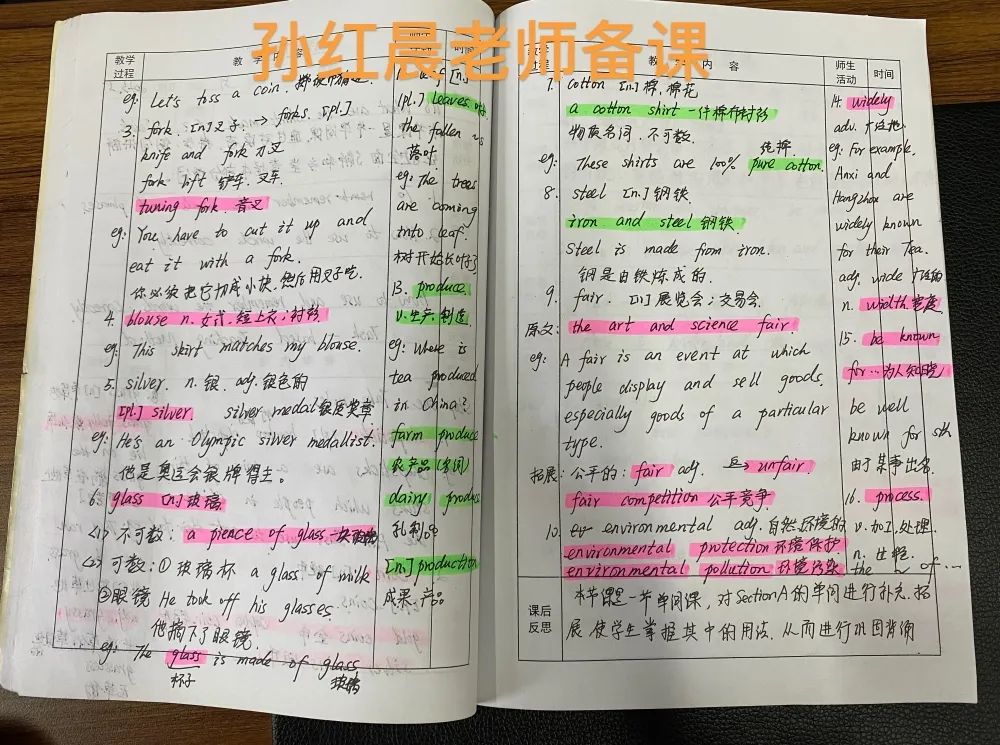 孙红晨老师备课
教学过程
教 学 内 容
eg: Let's toss a coin.
3. fork. [n.] 叉子. → forks. [pl.]
knife and fork 刀叉
fork lift 铲车. 叉车.
tuning fork. 音叉
eg: You have to cut it up and
eat it with a fork.
你必须把它切成小块,然后用叉子吃.
4. blouse n. 女式.短上衣;衬衫
eg: This skirt matches my blouse.
5. silver. n. 银. adj. 银色的
[pl.] silver silver medal 银质奖章
eg: He's an Olympic silver medallist.
他是奥运会银牌得主。
6. glass [n.] 玻璃.
<1> 不可数: a pience of glass 一块玻璃
<2> 可数: ① 玻璃杯 a glass of milk
②眼镜 He took off his glasses.
他摘下了眼镜.
eg: The glass is made of glass
杯子 玻璃
[n.]
[pl.] leaves
the fallen
落叶
eg: The trees
are coming
into leaf.
树开始长叶了
13. produce
v. 生产. 制造.
eg: Where is
tea produced
in China?
farm produce
农产品
dairy produce
乳制品
[n.] production
成果.产品
内 容
师生活动
时间
7. cotton [n.] 棉,棉花
a cotton shirt 一件棉布衬衫
物质名词,不可数.
纯棉.
eg: These shirts are 100% pure cotton.
8. steel [n.] 钢铁
iron and steel 钢铁.
Steel is made from iron.
钢是由铁炼成的.
9. fair. [n.] 展览会;交易会.
原文: the art and science fair.
eg: A fair is an event at which
people display and sell goods,
especially goods of a particular
type.
拓展: 公平的: fair adj. → unfair.
fair competition 公平竞争
10. environmental adj. 自然环境的
environmental protection 环境保护
environmental pollution 环境污染
14. widely
adv.
eg: For example,
Anxi and
Hangzhou are
widely known
for their Tea.
adj. wide
n. width. 宽度.
15. be known
for … 为人知晓
be well
known for sth
由于某事出名.
16. process.
v. 加工.处理.
n. 过程.
the ~ of …
课后反思
本节课是一节单词课,对SectionA的单词进行补充.拓
展,使学生掌握其中的用法.从而进行巩固背诵